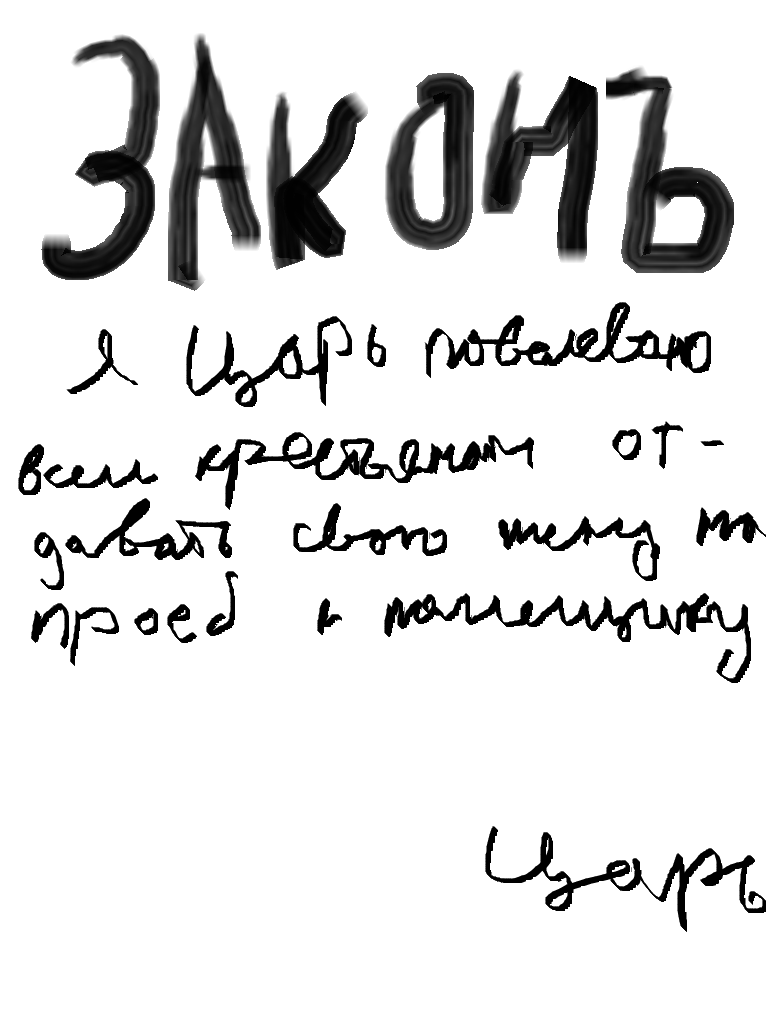 ЗАКОНЪ
я Царь повелеваю
всем крестьянам от-
давать свою жену на
проеб к помещику
Царь